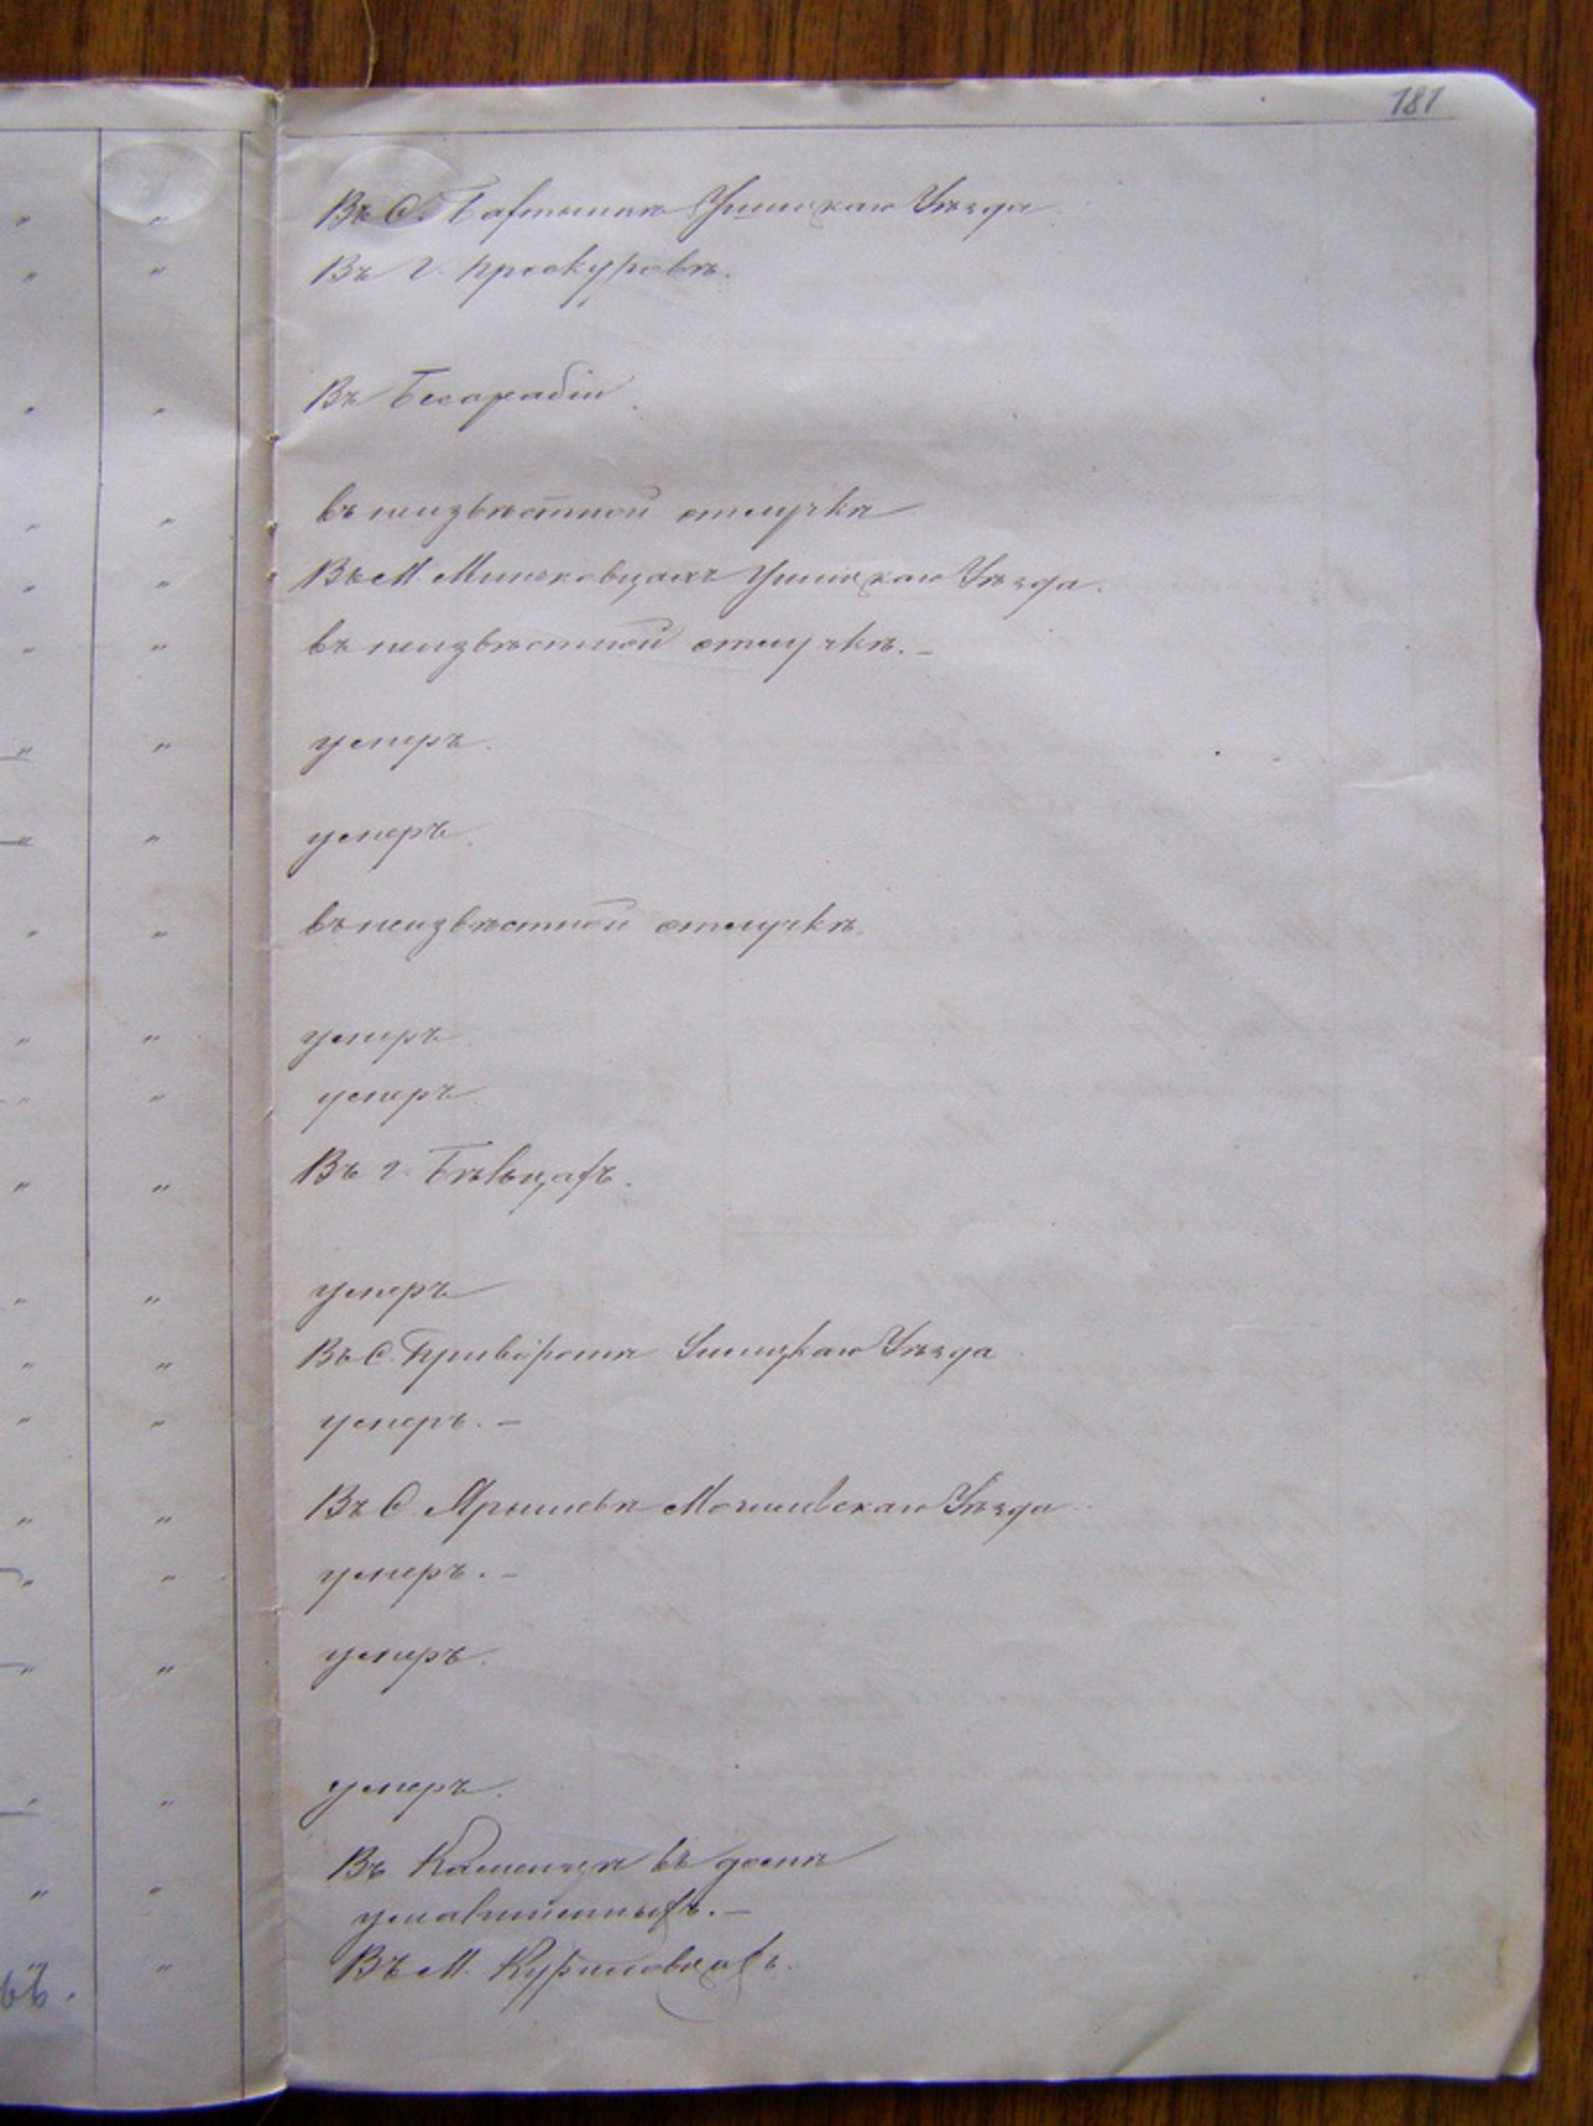 181
Въ С. Ушицкаго Уѣзда
Въ г. Проскуровѣ.
Въ Бесарабіи.
въ неизвѣстной отлучкѣ
Въ М. Миньковцахъ Ушицкаго Уѣзда.
въ неизвѣстной отлучкѣ. –
умеръ.
умеръ.
въ неизвѣстной отлучкѣ.
умеръ
умеръ.
Въ г. Бѣльцахъ.
умеръ
Въ С. Привороття Ушицкаго Уѣзда
умеръ. –
Въ С. Ярышевѣ Могилевскаго Уѣзда.
умеръ. –
умеръ.
умеръ.
Въ Каменцѣ въ домѣ
умалишенныхъ. –
Въ М. Куриловцахъ.
ъ.